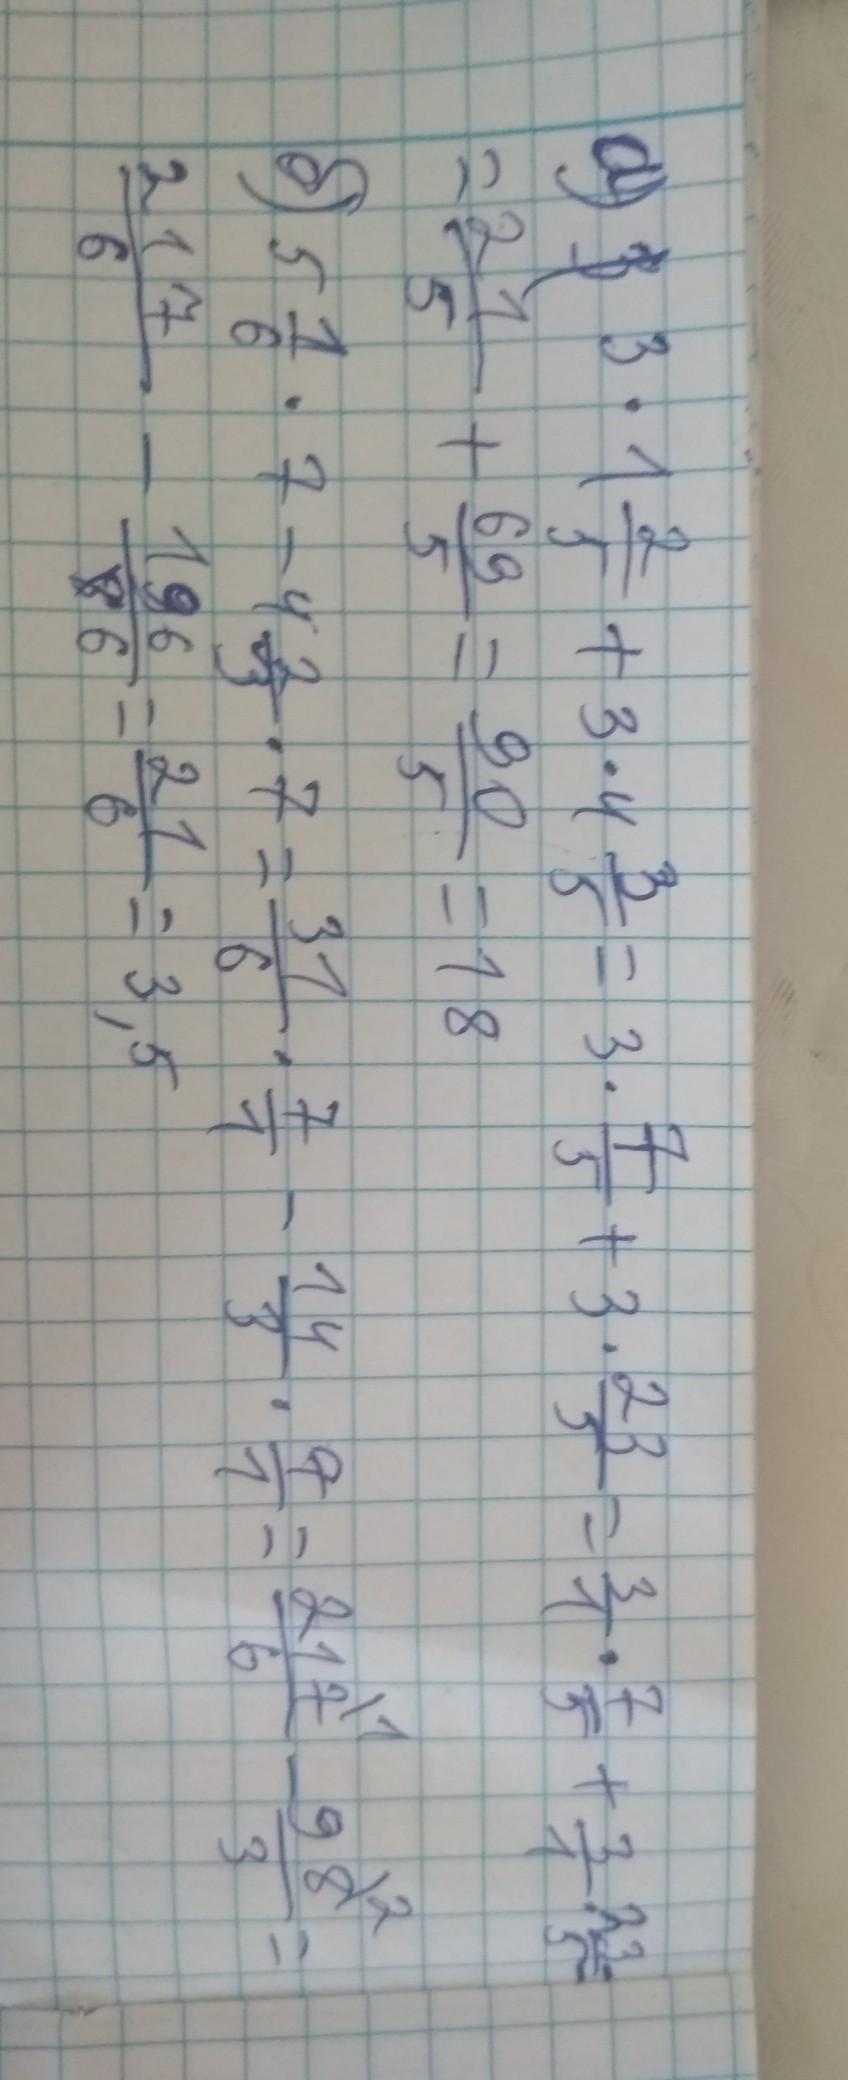 а) 3 · 1 2/5 + 3 · 4 3/5 = 3 · 7/5 + 3 · 23/5 = 3/1 · 7/5 + 3/1 · 23/5 =
= 21/5 + 69/5 = 90/5 = 18
б) 5 1/6 · 7 - 4 2/3 · 7 = 31/6 · 7/1 - 14/3 · 7/1 = 217\1/6 - 98\2/3 =
217/6 - 196/6 = 21/6 = 3,5